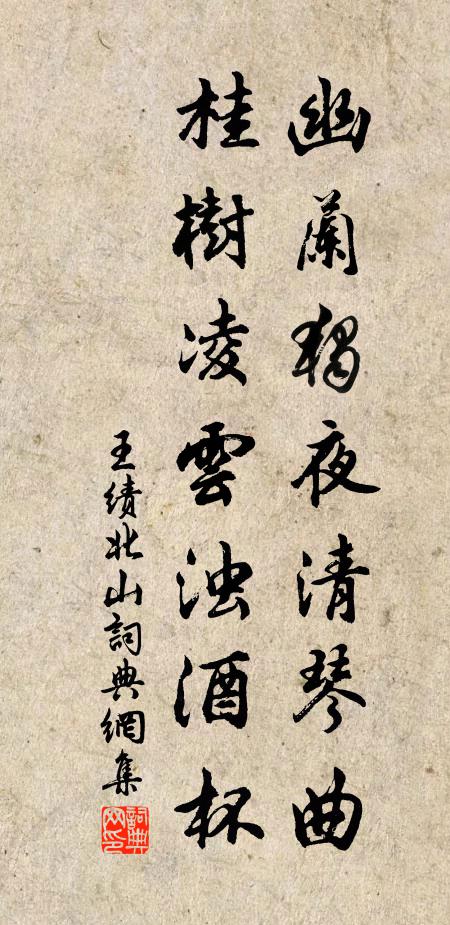 幽蘭獨夜清琴曲
桂樹凌雲浊酒杯
王績北山詞典網集
詞典网印